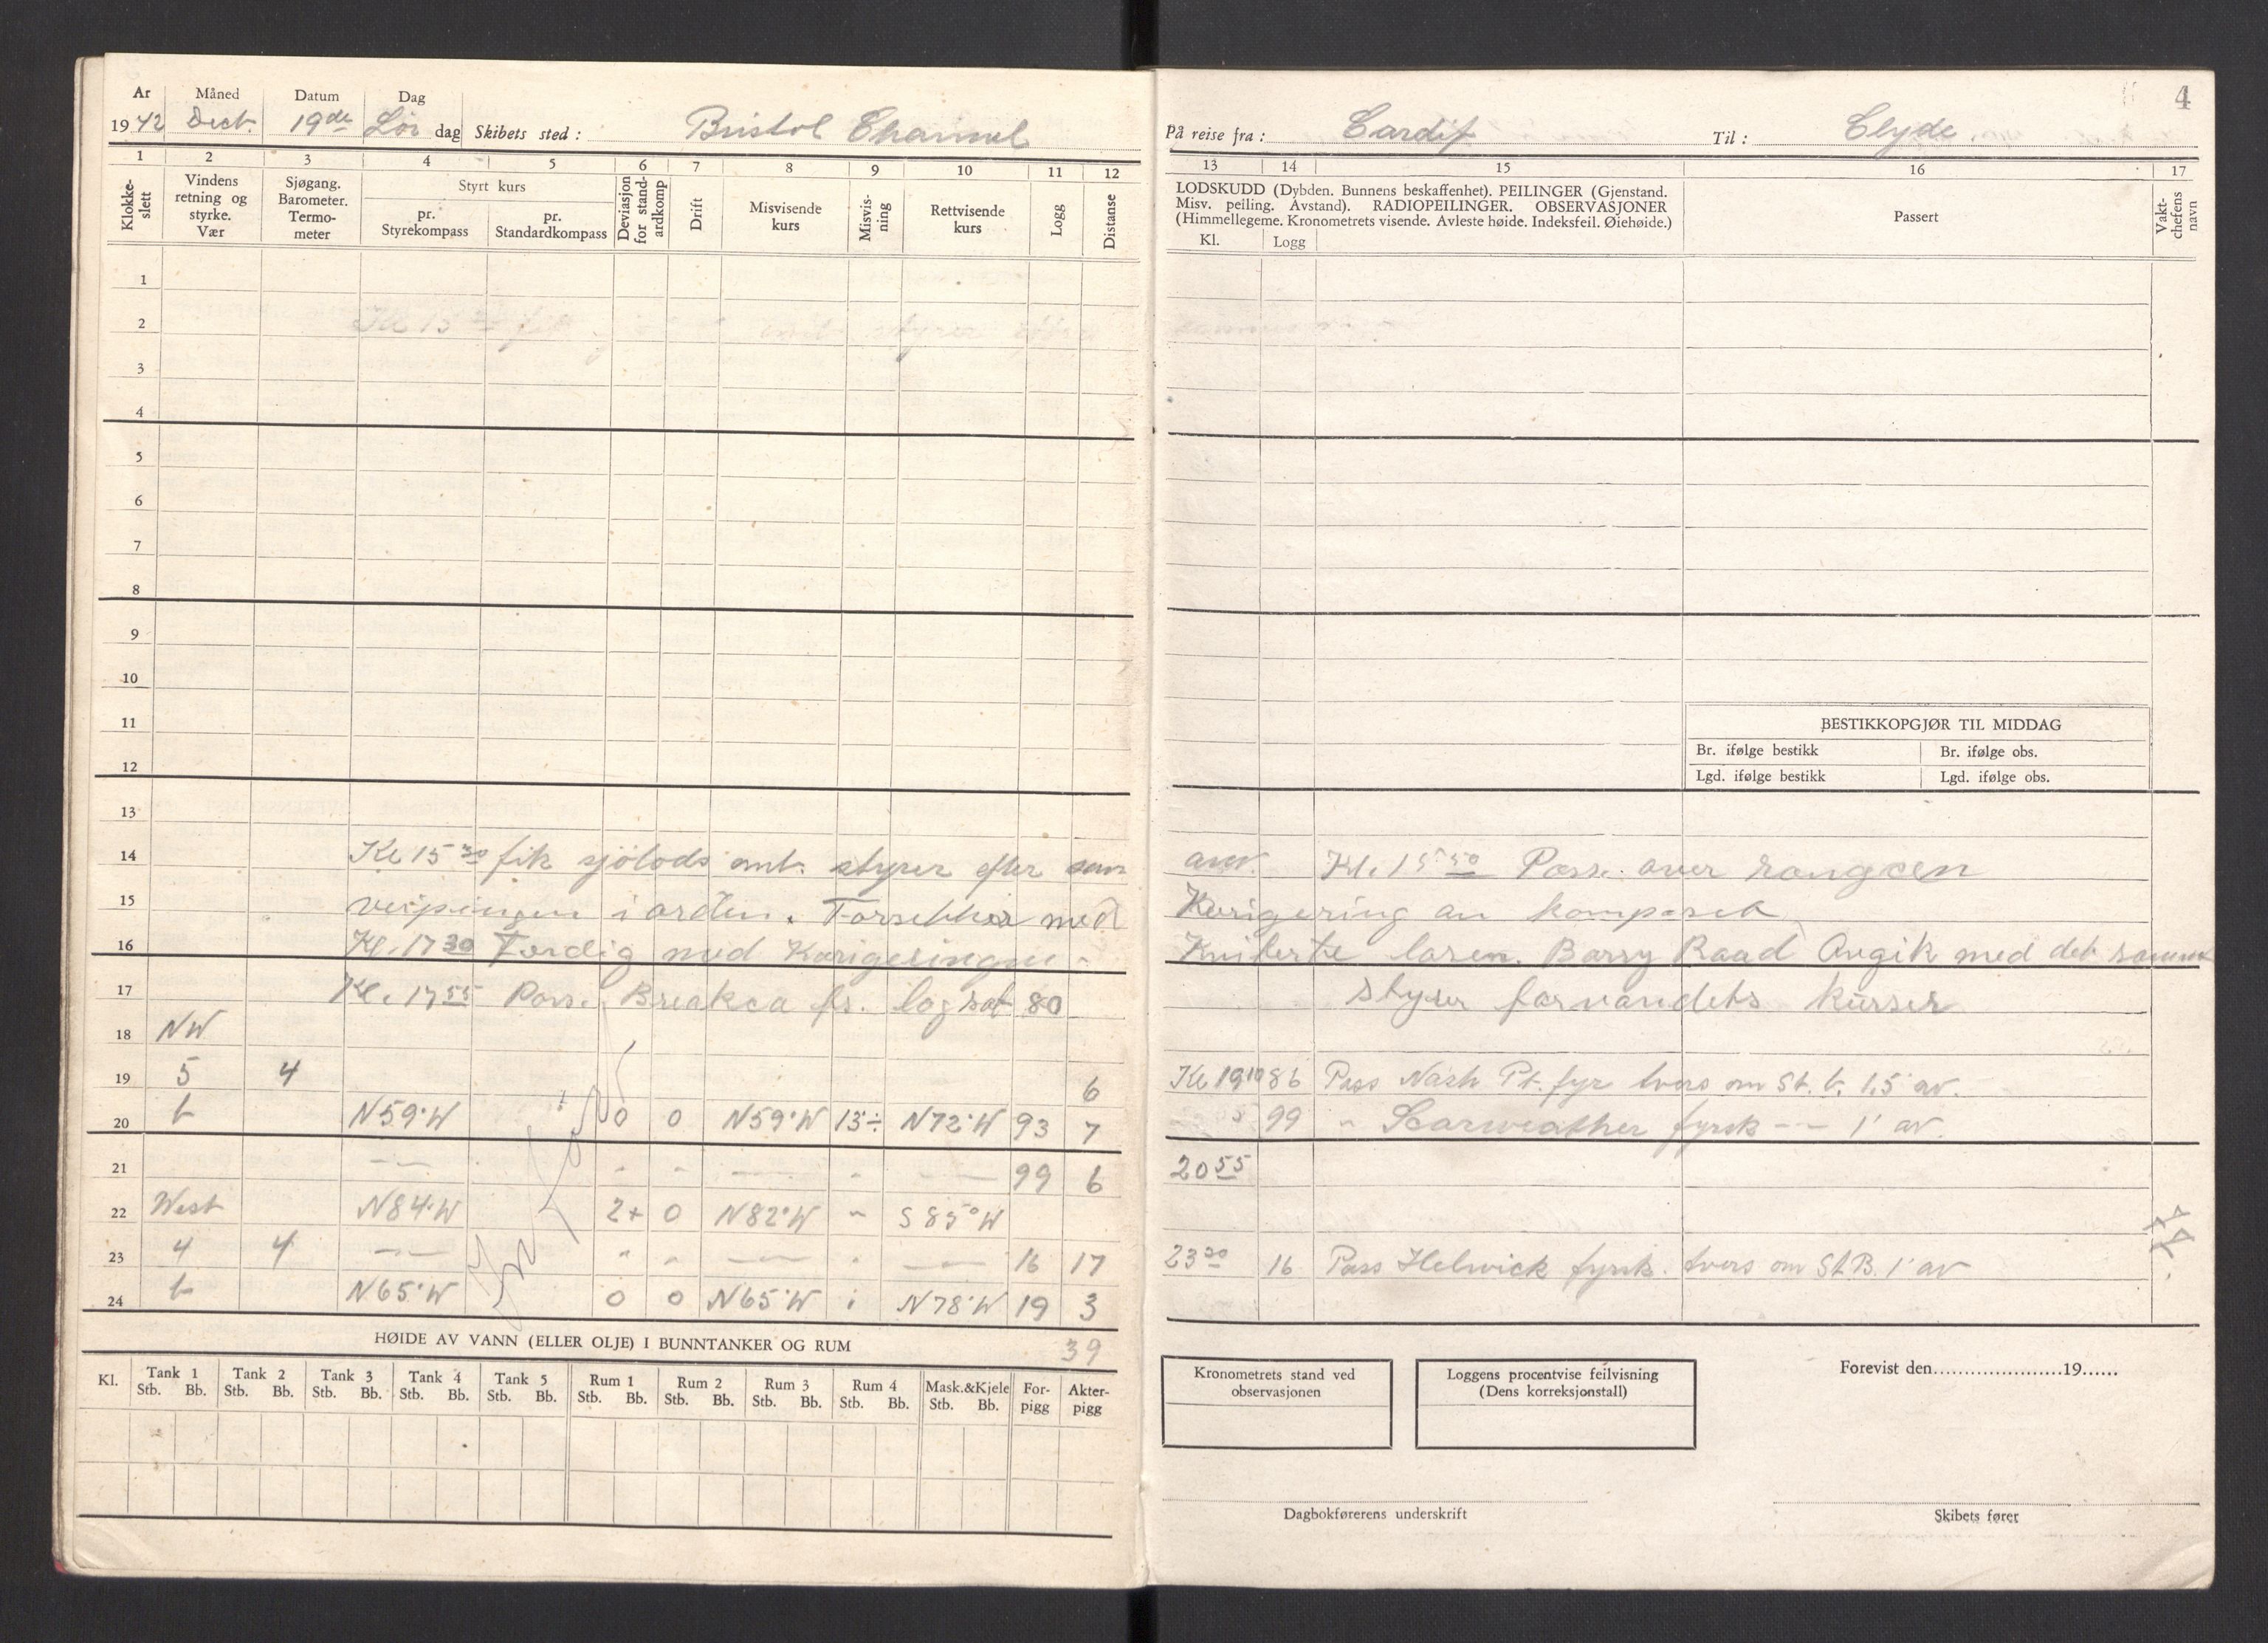 4
År Måned Datum Dag
1942 Dect. 19de Lör dag Skibets sted: Bristol Channel
På reise fra: Cardif Til: Clyde.
1 2 3 4 5 6 7 8 9 10 11 12
13 14 15 16 17
Klokke-slett
Vindens retning og styrke. Vær
Sjøgang. Barometer. Termo-meter
Styrt kurs
pr. Styrekompass
pr. Standardkompass
Deviasjon for stand-ardkomp
Drift
Misvisende kurs
Misvis-ning
Rettvisende kurs
Logg
Distanse
LODSKUDD (Dybden. Bunnens beskaffenhet). PEILINGER (Gjenstand.
Misv. peiling. Avstand). RADIOPEILINGER. OBSERVASJONER
(Himmellegeme. Kronometrets visende. Avleste høide. Indeksfeil. Øiehøide.)
Kl. Logg
Passert
Vakt-chefens navn
1
2 Kl 15 30 fik styrer
3
4
5
6
7
8
9
10
11
12
BESTIKKOPGJØR TIL MIDDAG
Br. ifølge bestikk Br. ifølge obs.
Lgd. ifølge bestikk Lgd. ifølge obs.
13
14 Kl 15 30 fik sjölods omb. styrer efter Kl. 15 50 Pass. over
15 i orden. med Korigering av
16 Kl. 17 30 Færdig med Korigeringen Barry Raad Avgik med det samme
17 Kl. 17 55 Pass. Breaksea fs. log sat 80 styrer farvandets kurser
18 NW
19 5 4 6 Kl 19 10 86 Pass Nash Pt. fyr tvers om St. b. 1,5' av.
20 b N59°W 0 0 N59°W 13÷ N72°W 93 7 99 " Scarweather fyrsk -- 1' av.
21 - - - - - - 99 6 20 55
22 West N84°W 2+ 0 N82°W " S85°W
23 4 4 - " - - - 16 17 23 30 16 Pass Helwick fyrsk. tvers om St.B. 1' av
24 b N65°W 0 0 N65°W N78°W 19 3
39
HØIDE AV VANN (ELLER OLJE) I BUNNTANKER OG RUM
Kl. Tank 1 Tank 2 Tank 3 Tank 4 Tank 5 Rum 1 Rum 2 Rum 3 Rum 4 Mask.&Kjele For-pigg Akter-pigg
Stb. Bb. Stb. Bb. Stb. Bb. Stb. Bb. Stb. Bb. Stb. Bb. Stb. Bb. Stb. Bb. Stb. Bb. Stb. Bb.
Kronometrets stand ved
observasjonen
Loggens procentvise feilvisning
(Dens korreksjonstall)
Forevist den......................19......
Dagbokførerens underskrift
Skibets fører